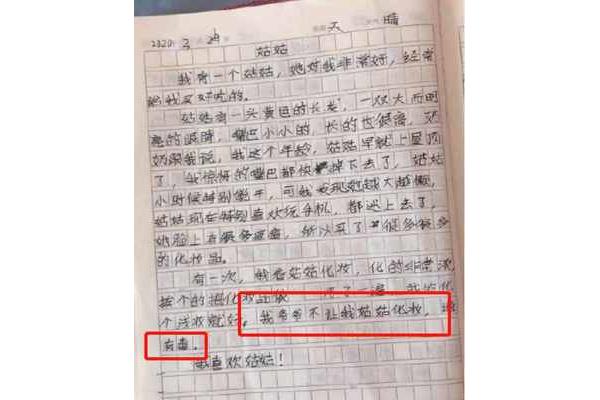 2020. 3 29 天 晴
姑姑
我有一个姑姑，她对我非常好，经常
给我买好吃的。
姑姑有一头黄色的长发，一双大而明
亮的眼睛，嘴巴小小的，长的也很高，奶
奶跟我说，我这个年龄，姑姑早就上屋顶
了，我惊讶的嘴巴都快掉下去了，姑姑
小时候特别能干，可我发现她越大越懒，
姑姑现在特别喜欢玩手机，都迷上去了，
她脸上有很多痘痘，所以买了很多很多
的化妆品。
有一次，我看姑姑化妆，化的非常浓
整个的把化妆品
个浅妆就好。我爷爷不让我姑姑化妆，
有毒。
我喜欢姑姑！